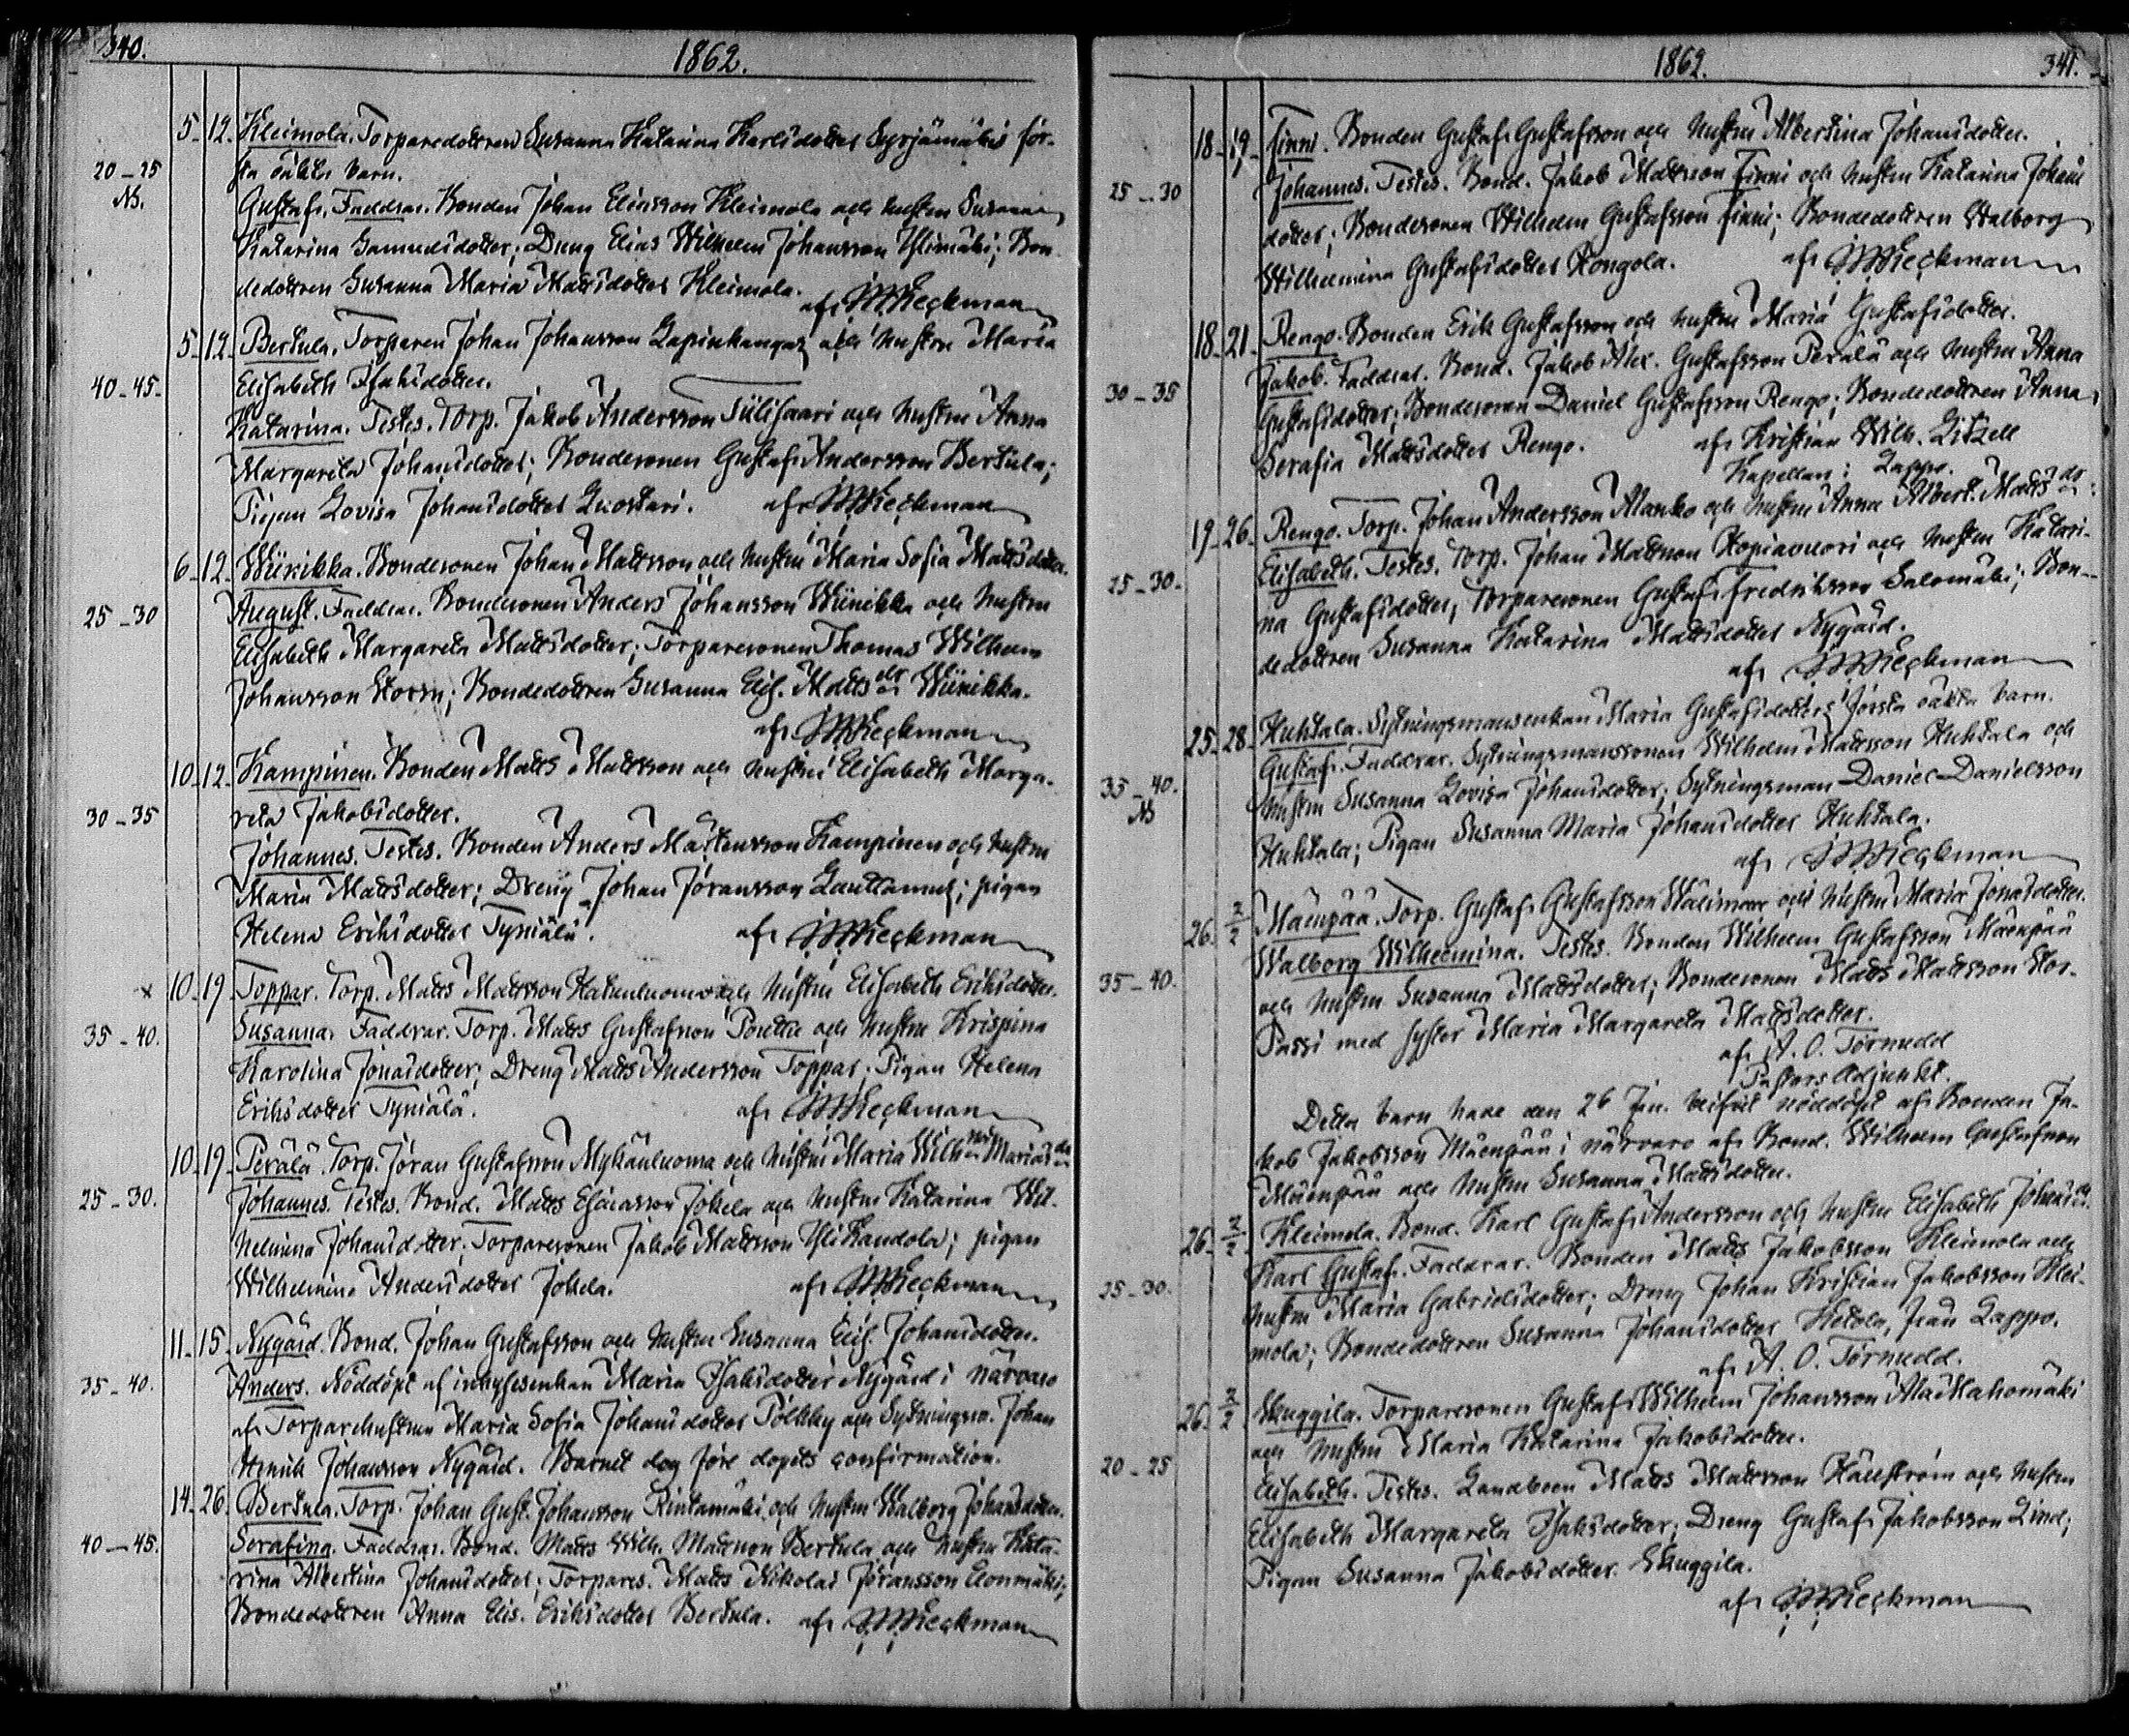 340.
1862.
5 12 Kleimola. Torparedottren Susanna Katarina Karlsdotter Syrjämäkis för-
20-25 sta oäkta barn.
Ns. Gustaf. Faddrar. Bonden Johan Eliasson Kleimola och hustru Susanna
Katarina Samuelsdotter; Dreng Elias Wilhelm Johansson Ylimäki; Bon-
dedottren Susanna Maria Mattsdotter Kleimola.
af Wieckman
5 12 Bertula. Torparen Johan Johansson Lapinkangas och hustru Maria
40-45. Elisabeth Isaksdotter.
Katarina. Testes. Torp. Jakob Andersson Sülisaari och hustru Anna
Margareta Johansdotter; Bondesonen Gustaf Andersson Bertula;
Pigan Lovisa Johansdotter Luostari. af Wieckman
6 12 Wiinikka. Bondesonen Johan Mattsson och hustru Maria Sofia Mattsdotter.
25-30 August. Faddrar. Bondesonen Anders Johansson Wiinikka och hustru
Elisabeth Margareta Mattsdotter; Torparesonen Thomas Wilhelm
Johansson Storm; Bondedottren Susanna Elis. Matts dr Wiinikka.
af Wieckman
10 12 Kampinen. Bonden Matts Mattsson och hustru Elisabeth Marga-
30-35 reta Jakobsdotter.
Johannes. Testes. Bonden Anders Mårtensson Kampinen och hustru
Maria Mattsdotter; Dreng Johan Jöransson; pigan
Helena Eriksdotter Tyniälä. af Wieckman
x 10 19 Toppar. Torp. Matts Mattsson Hatunluoma och hustru Elisabeth Eriksdotter.
35-40. Susanna. Faddrar. Torp. Matts Gustafsson Pouttu och hustru Krispina
Karolina Jonasdotter; Dreng Matts Andersson Toppar; Pigan Helena
Eriksdotter Tyniälä. af Wieckman
10 19 Perälä. Torp. Jöran Gustafsson Mykänluoma och hustru Maria Wilh:na Mariasdr
25-30. Johannes. Testes. Bond. Matts Esaiasson Jokela och hustru Katarina Wil-
helmina Johansdotter; Torparesonen Jakob Mattsson YliKandola; pigan
Wilhelmina Andersdotter Jokela. af Wieckman
11 15 Nygård. Bond. Johan Gustafsson och hustru Susanna Elis. Johansdotter.
35-40. Anders. Nöddöpt af inhysesenkan Maria Isaksdotter Nygård i närvaro
af Torparehustrun Maria Sofia Johansdotter Pölkky och Sytningsm. Johan
Henrik Johansson Nygård. Barnet dog före dopets confirmation.
14 26 Bertula. Torp. Johan Gust. Johansson Rintamäki och hustru Walborg Johansdotter.
40-45. Serafina. Faddrar. Bond. Matts Wilh. Mattsson Bertula och hustru Kata-
rina Albertina Johansdotter; Torpares. Matts Nikolai Jöransson Elonmäki;
Bondedottren Anna Elis. Eriksdotter Bertula. af Wieckman
1862. 341.
18 19 Finni. Bonden Gustaf Gustafsson och hustru Albertina Johansdotter.
25-30 Johannes. Testes. Bond. Jakob Mattsson Finni och hustru Katarina Johans
dotter; Bondesonen Wilhelm Gustafsson Finni; Bondedottren Walborg
Wilhelmina Gustafsdotter Kongola. af Wieckman
18 21 Rengo. Bonden Erik Gustafsson och hustru Maria Gustafsdotter.
30-35 Jakob. Faddrar. Bond. Jakob Alex. Gustafsson Perälä och hustru Anna
Gustafsdotter; Bondesonen Daniel Gustafsson Rengo; Bondedottren Anna
Serafia Mattsdotter Rengo. af Kristian Wilh. Litzell
Kapellan i Lappo.
19 26 Rengo. Torp. Johan Andersson Alanko och hustru Anna Albert. Matts dr
25-30. Elisabeth. Testes. Torp. Johan Mattsson Kopiavuori och hustru Katari-
na Gustafsdotter, Torparesonen Gustaf Fredriksson Salomäki; Bon-
dedottren Susanna Katarina Mattsdotter Nygård.
af Wieckman
25 28 Huhtala. Sytningsmansenkan Maria Gustafsdotters första oäkta barn.
35-40. Gustaf. Faddrar. Sytningsmanssonen Wilhelm Mattsson Huhtala och
Ns hustru Susanna Lovisa Johansdotter; Sytningsman Daniel Danielsson
Huhtala; Pigan Susanna Maria Johansdotter Huhtala.
af Wieckman
26. 2/2 Mäenpää. Torp. Gustaf Gustafsson Wälimaa och hustru Maria Jonasdotter.
35-40. Walborg Wilhelmina. Testes. Bonden Wilhelm Gustafsson Mäenpää
och hustru Susanna Mattsdotter; Bondesonen Matts Mattsson Stor-
Passi med syster Maria Margareta Mattsdotter.
af A. O. Törnudd
Pastors Adjunkt.
Detta barn hade den 26 Jan. blifvit nöddöpt af Bonden Ja-
kob Jakobsson Mäenpää i närvaro af Bond. Wilhelm Gustafsson
Mäenpää och hustru Susanna Mattsdotter.
26. 2/2 Kleimola. Bond. Karl Gustaf Andersson och hustru Elisabeth Johansdr.
25-30. Karl Gustaf. Faddrar. Bonden Matts Jakobsson Kleimola och
hustru Maria Gabrielsdotter; Dreng Johan Kristian Jakobsson Klei-
mola; Bondedottren Susanna Johansdotter Ketola, från Lappo.
af A. O. Törnudd.
26. 2/2 Skuggila. Torparesonen Gustaf Wilhelm Johansson AlaMahomäki
och hustru Maria Katarina Jakobsdotter.
20-25 Elisabeth. Testes. Landboen Matts Mattsson Hällström och hustru
Elisabeth Margareta Isaksdotter; Dreng Gustaf Jakobsson Lind;
Pigan Susanna Jakobsdotter Skuggila.
af Wieckman